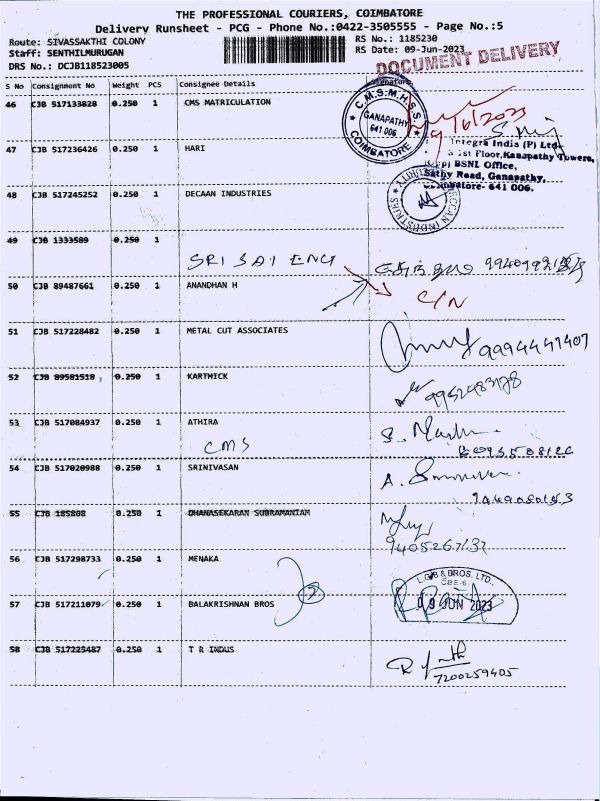 THE PROFESSIONAL COURIERS, COIMBATORE
Delivery Runsheet - PCG - Phone No.:0422-3505555 - Page No.:5
Route: SIVASSAKTHI COLONY
RS No.: 1185230
Staff: SENTHILMURUGAN
RS Date: 09-Jun-2023
DRS No.: DCJB118523005
DOCUMENT DELIVERY
S No Consignment No Weight PCS Consignee Details Signature
46 CJB 517133828 0.250 1 CMS MATRICULATION
C.M.S.M.H.S.S
GANAPATHY
641 006
COIMBATORE
9/6/2023
47 CJB 517236426 0.250 1 HARI
Integra India (P) Ltd
1st Floor, Kanapathy Towers,
BSNL Office,
Sathy Road, Ganapathy,
Coimbatore- 641 006.
48 CJB 517245252 0.250 1 DECAAN INDUSTRIES
49 CJB 1333589 0.250 1
SRI SAI ENG
50 CJB 89487661 0.250 1 ANANDHAN H
C/N
51 CJB 517228482 0.250 1 METAL CUT ASSOCIATES
9994447407
52 CJB 89581518 0.250 1 KARTHICK
53 CJB 517084937 0.250 1 ATHIRA
CMS
54 CJB 517020988 0.250 1 SRINIVASAN
55 CJB 185808 0.250 1 DHANASEKARAN SUBRAMANIAM
9405267132
56 CJB 517298733 0.250 1 MENAKA
L.G.B & BROS. LTD.,
CBE-6
57 CJB 517211079 0.250 1 BALAKRISHNAN BROS
09 JUN 2023
58 CJB 517225487 0.250 1 T R INDUS
7200259405